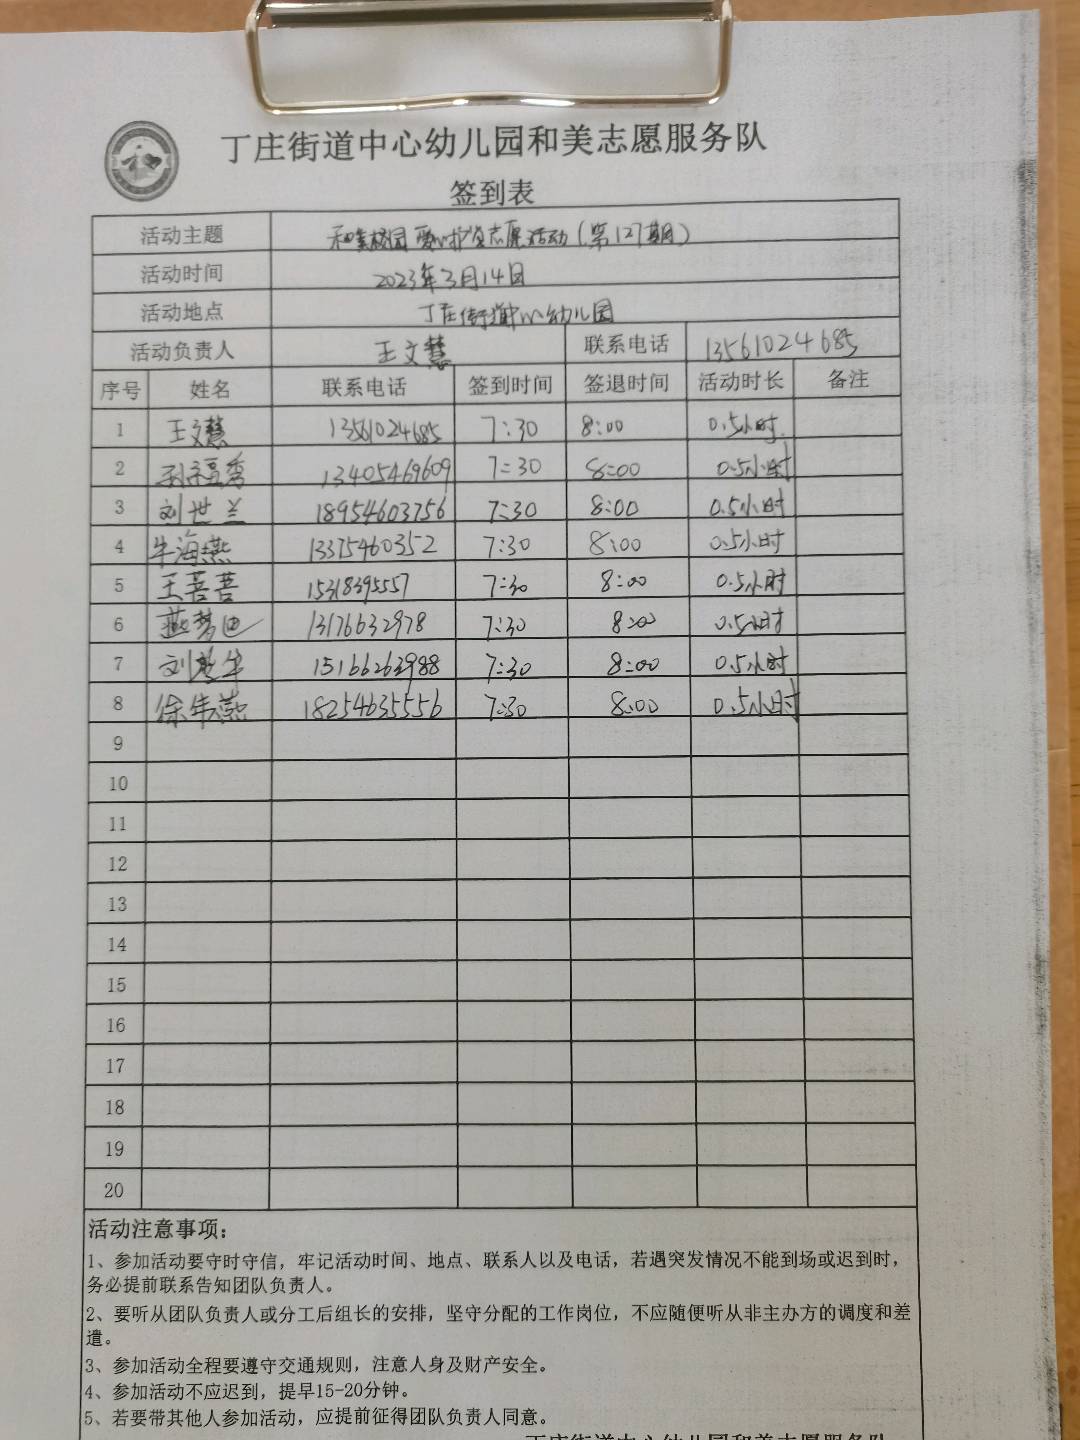 和
丁庄街道中心幼儿园和美志愿服务队
签到表
活动主题 和美校园 爱心护航志愿活动(第127期)
活动时间 2023年3月14日
活动地点 丁庄街道中心幼儿园
活动负责人 王文慧 联系电话 13561024685
序号 姓名 联系电话 签到时间 签退时间 活动时长 备注
1 王文慧 13561024685 7:30 8:00 0.5小时
2 孙福秀 13405469609 7:30 8:00 0.5小时
3 刘世兰 18954603756 7:30 8:00 0.5小时
4 牛海燕 13375460352 7:30 8:00 0.5小时
5 王菩菩 15318395557 7:30 8:00 0.5小时
6 燕梦迪 13176632978 7:30 8:00 0.5小时
7 刘 15166263988 7:30 8:00 0.5小时
8 徐伟燕 18254635556 7:30 8:00 0.5小时
9
10
11
12
13
14
15
16
17
18
19
20
活动注意事项：
1、参加活动要守时守信，牢记活动时间、地点、联系人以及电话，若遇突发情况不能到场或迟到时，
务必提前联系告知团队负责人。
2、要听从团队负责人或分工后组长的安排，坚守分配的工作岗位，不应随便听从非主办方的调度和差
遣。
3、参加活动全程要遵守交通规则，注意人身及财产安全。
4、参加活动不应迟到，提早15-20分钟。
5、若要带其他人参加活动，应提前征得团队负责人同意。
丁庄街道中心幼儿园和美志愿服务队